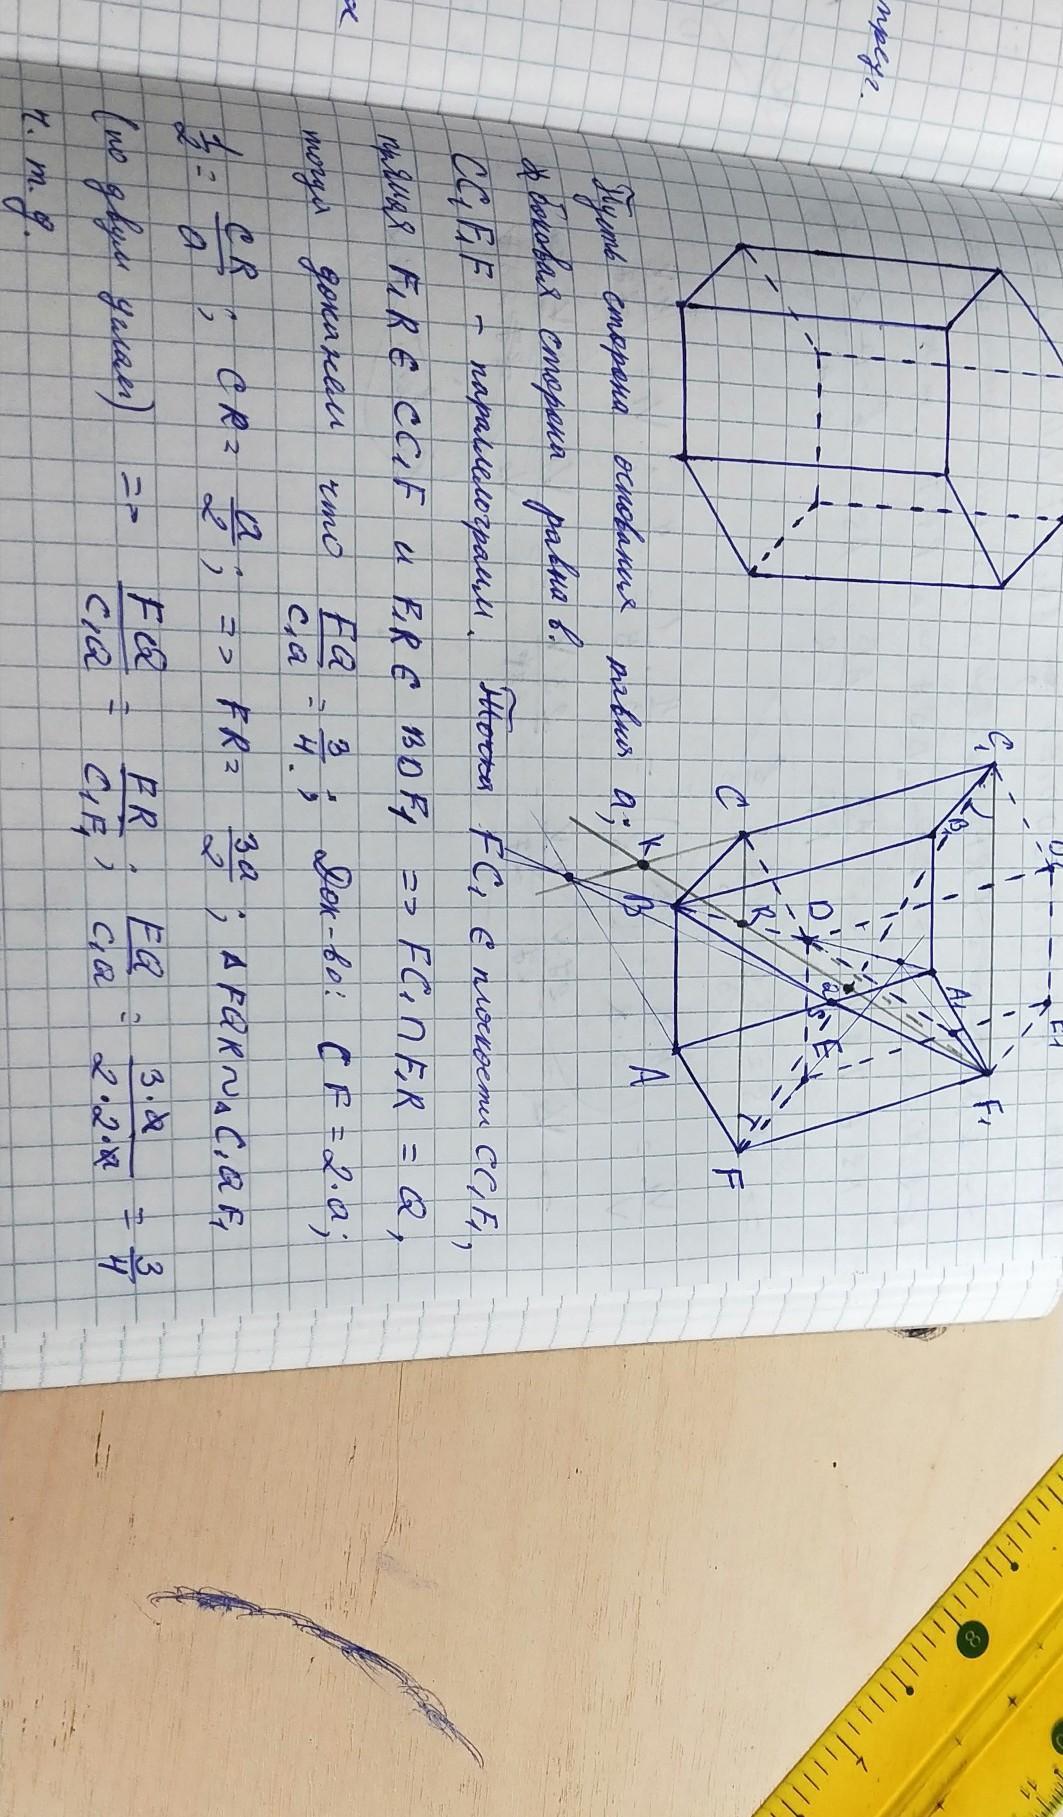 Пусть сторона основания равна a;
боковая сторона равна b.
CC₁F₁F - параллелограмм. Точка FC₁ ∈ плоскости CC₁F₁,
прямая F₁R ∈ CC₁F и F₁R ∈ BDF₁ => FC₁ ∩ F₁R = Q,
тогда докажем что FQ/C₁Q = 3/4; Док-во: CF = 2·a;
1/2 = CR/a; CR = a/2; => FR = 3a/2; △FQR ~ △C₁QF₁
(по двум углам) => FQ/C₁Q = FR/C₁F₁; FQ/C₁Q = 3·a/2·2·a = 3/4
ч.т.д.
C₁
B₁
D₁
E₁
A₁
F₁
C
K
B
R
D
Q
S
E
A
F
треуг.
x
8